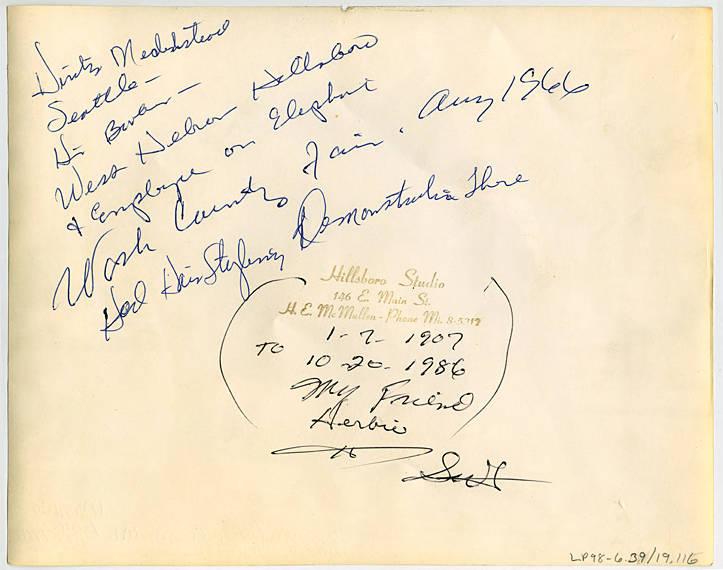 Seattle -
West Hillsboro
& Employee on Elephant
Wash County Fair. Aug 1966
Had Hair Styleing Demonstration There
Hillsboro Studio
146 E. Main St.
H. E. McMullen - Phone Mi. 8-5212
1-7-1907
TO
10-20-1986
My Friend
Herbie
LP98-6.39/19.116